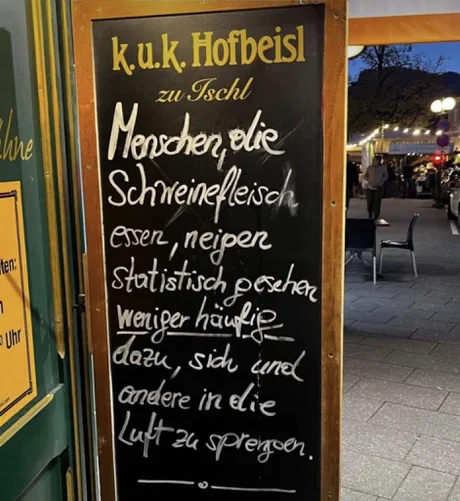 k.u.k. Hofbeisl
zu Ischl
Menschen, die
Schweinefleisch
essen, neigen
statistisch gesehen
weniger häufig
dazu, sich und
andere in die
Luft zu sprengen.
ühne
ten:
Uhr